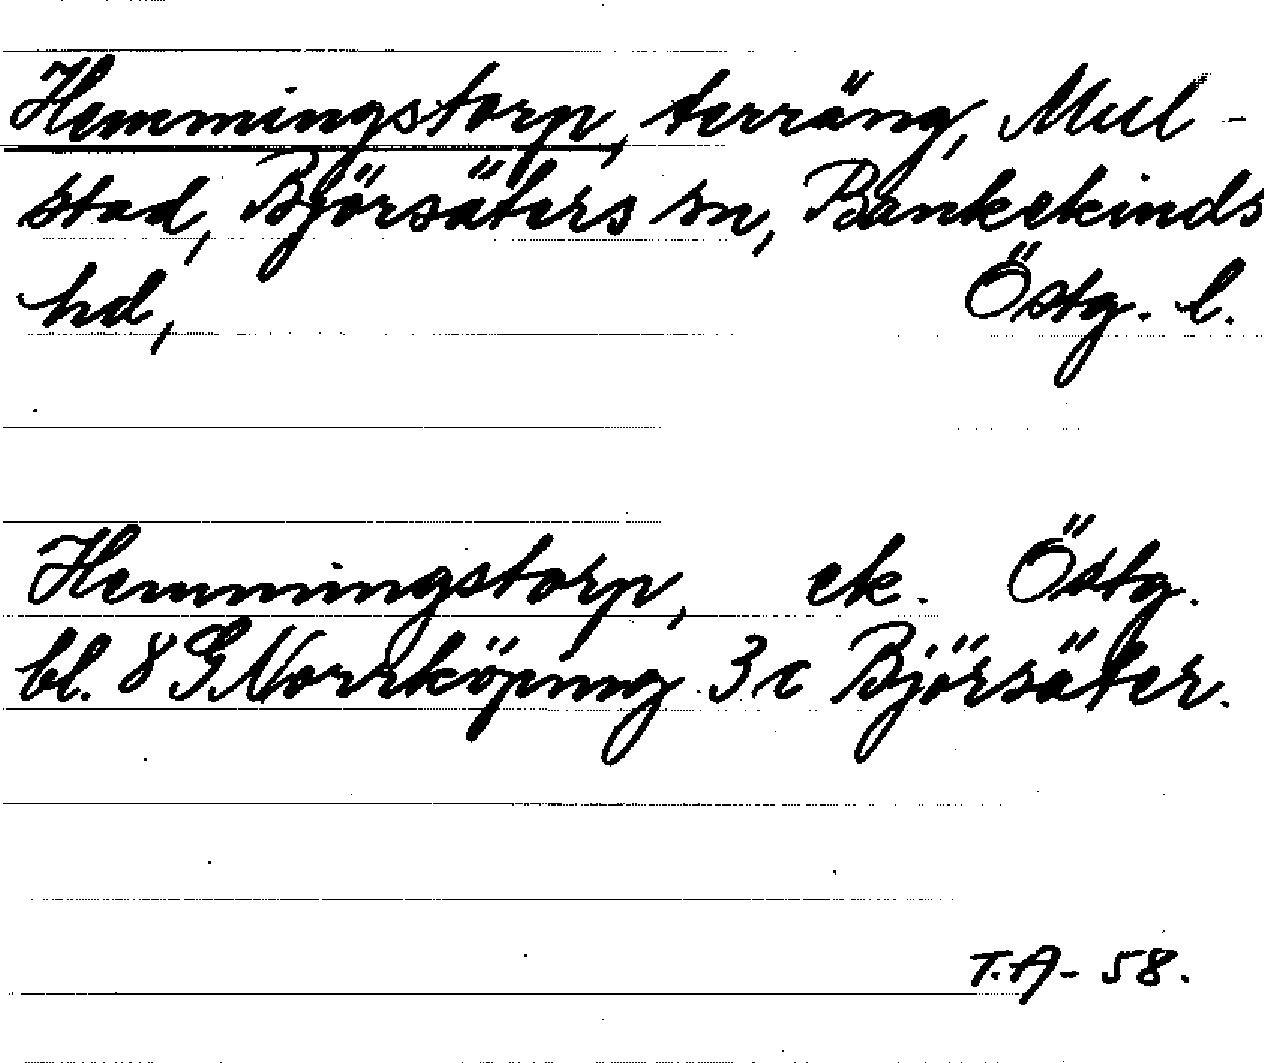 Hemmingstorp, terräng, Mul-
stad, Björsäters sn, Bankekinds
hd, Östg. l.
Hemmingstorp, ek. Östg.
bl. 8 G Norrköping 3 c Björsäter.
T.A- 58.